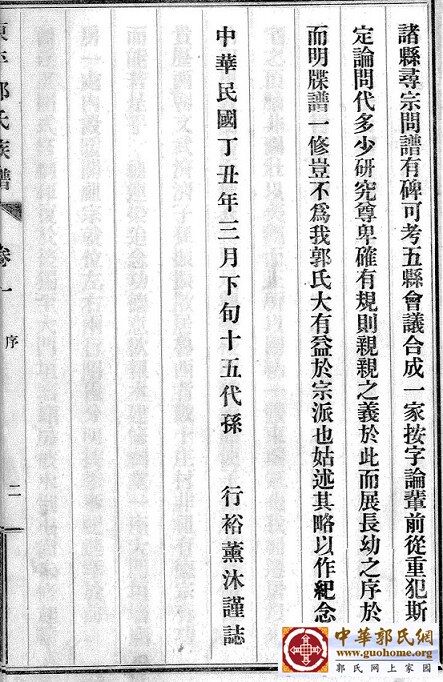 諸縣尋宗問譜有碑可考五縣會議合成一家按字論輩前從重犯斯
定論問代多少研究尊卑確有規則親親之義於此而展長幼之序於
而明牒譜一修豈不為我郭氏大有益於宗派也姑述其略以作紀念
中華民國丁丑年三月下旬十五代孫 行裕薰沐謹誌
東平郭氏族譜 卷一 序 二
中華郭氏網
www.guohome.org
郭氏网上家园